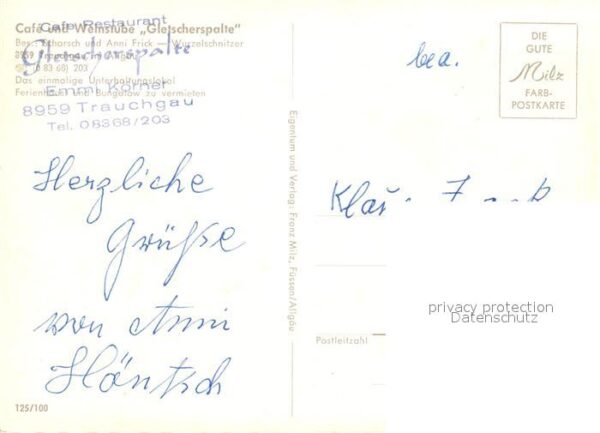 Café und Weinstube „Gletscherspalte"
Bes.: Scharsch und Anni Frick — Wurzelschnitzer
8959 Trauchgau im Allgäu
0 83 68) 203
Das einmalige Unterhaltungslokal
Ferienhaus und Bungalow zu vermieten
Cafe Restaurant
Gletscherspalte
Emmi Körner
8959 Trauchgau
Tel. 08368/203
Herzliche
Grüße
von Anni
Höntsch
125/100
Eigentum und Verlag: Franz Milz, Füssen/Allgäu
bea.
DIE
GUTE
Milz
FARB-
POSTKARTE
Klas
privacy protection
Datenschutz
Postleitzahl